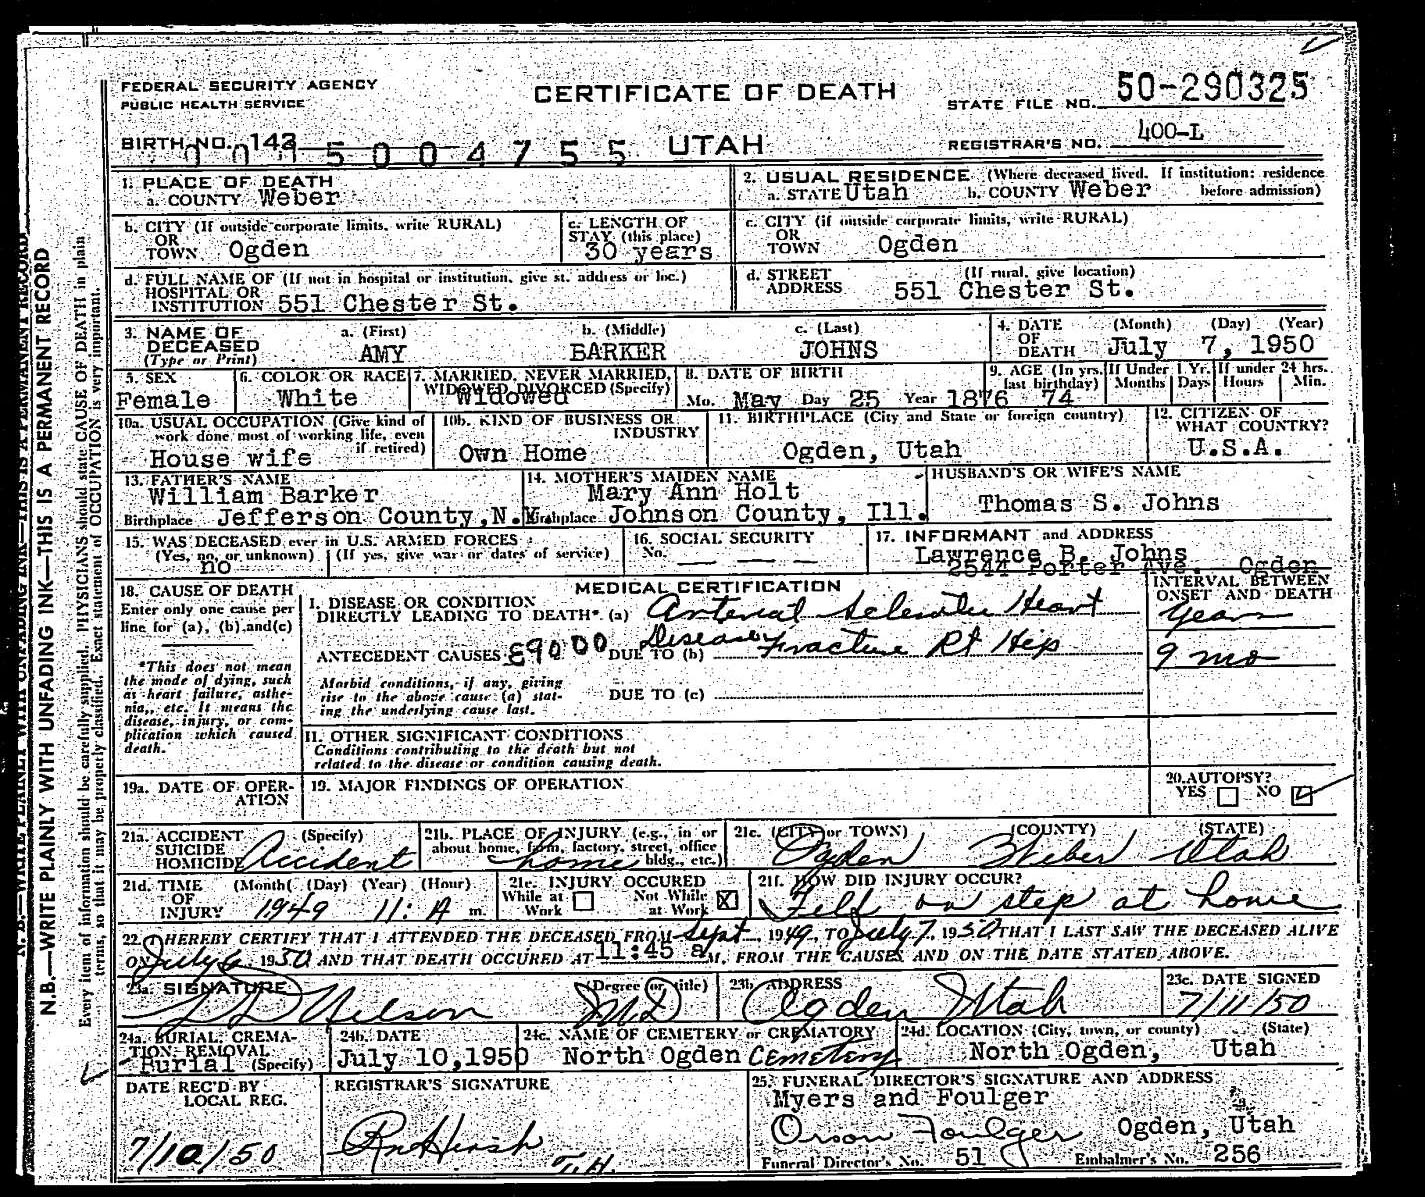 FEDERAL SECURITY AGENCY
PUBLIC HEALTH SERVICE
CERTIFICATE OF DEATH
STATE FILE NO. 50-290325
BIRTH NO. 143
UTAH
REGISTRAR'S NO. 400-L
5004755
1. PLACE OF DEATH
a. COUNTY Weber
2. USUAL RESIDENCE (Where deceased lived. If institution: residence before admission)
a. STATE Utah b. COUNTY Weber
b. CITY (If outside corporate limits, write RURAL)
OR
TOWN Ogden
c. LENGTH OF
STAY (this place)
30 years
c. CITY (if outside corporate limits, write RURAL)
OR
TOWN Ogden
d. FULL NAME OF (If not in hospital or institution, give st. address or loc.)
HOSPITAL OR
INSTITUTION 551 Chester St.
d. STREET (If rural, give location)
ADDRESS 551 Chester St.
3. NAME OF
DECEASED
(Type or Print)
a. (First) b. (Middle) c. (Last)
AMY BARKER JOHNS
4. DATE (Month) (Day) (Year)
OF
DEATH July 7, 1950
5. SEX
Female
6. COLOR OR RACE
White
7. MARRIED, NEVER MARRIED,
WIDOWED DIVORCED (Specify)
Widowed
8. DATE OF BIRTH
Mo. May Day 25 Year 1876
9. AGE (In yrs. last birthday) If Under 1 Yr. If under 24 hrs.
Months Days Hours Min.
74
10a. USUAL OCCUPATION (Give kind of
work done most of working life, even
if retired)
House wife
10b. KIND OF BUSINESS OR
INDUSTRY
Own Home
11. BIRTHPLACE (City and State or foreign country)
Ogden, Utah
12. CITIZEN OF
WHAT COUNTRY?
U.S.A.
13. FATHER'S NAME
William Barker
Birthplace Jefferson County, N.Y.
14. MOTHER'S MAIDEN NAME
Mary Ann Holt
Birthplace Johnson County, Ill.
HUSBAND'S OR WIFE'S NAME
Thomas S. Johns
15. WAS DECEASED ever in U.S. ARMED FORCES
(Yes, no, or unknown) (If yes, give war or dates of service)
no
16. SOCIAL SECURITY
No. — — —
17. INFORMANT and ADDRESS
Lawrence B. Johns
2544 Porter Ave. Ogden
18. CAUSE OF DEATH
Enter only one cause per
line for (a), (b) and (c)
*This does not mean
the mode of dying, such
as heart failure, asthe-
nia,, etc. It means the
disease, injury, or com-
plication which caused
death.
MEDICAL CERTIFICATION
INTERVAL BETWEEN
ONSET AND DEATH
I. DISEASE OR CONDITION
DIRECTLY LEADING TO DEATH* (a) Arterial Sclerotic Heart
Disease
Years
ANTECEDENT CAUSES E9000 DUE TO (b) Fracture Rt Hip
9 mo
Morbid conditions, if any, giving
rise to the above cause (a) stat-
ing the underlying cause last.
DUE TO (c)
II. OTHER SIGNIFICANT CONDITIONS
Conditions contributing to the death but not
related to the disease or condition causing death.
19a. DATE OF OPER-
ATION
19. MAJOR FINDINGS OF OPERATION
20. AUTOPSY?
YES NO
21a. ACCIDENT (Specify)
SUICIDE
HOMICIDE Accident
21b. PLACE OF INJURY (e.g., in or
about home, farm, factory, street, office
bldg., etc.)
home
21c. (CITY or TOWN) (COUNTY) (STATE)
Ogden Weber Utah
21d. TIME (Month) (Day) (Year) (Hour)
OF
INJURY 1949 11: A m.
21e. INJURY OCCURED
While at Work Not While at Work
21f. HOW DID INJURY OCCUR?
Fell on step at home
22. I HEREBY CERTIFY THAT I ATTENDED THE DECEASED FROM Sept., 1949, TO July 7, 1950 THAT I LAST SAW THE DECEASED ALIVE
ON July 6 1950 AND THAT DEATH OCCURED AT 11:45 a M., FROM THE CAUSES AND ON THE DATE STATED ABOVE.
23a. SIGNATURE (Degree or title)
Nelson MD
23b. ADDRESS
Ogden Utah
23c. DATE SIGNED
7/11/50
24a. BURIAL, CREMA-
TION, REMOVAL
Burial (Specify)
24b. DATE
July 10,1950
24c. NAME OF CEMETERY or CREMATORY
North Ogden Cemetery
24d. LOCATION (City, town, or county) (State)
North Ogden, Utah
DATE REC'D BY
LOCAL REG.
7/10/50
REGISTRAR'S SIGNATURE
25. FUNERAL DIRECTOR'S SIGNATURE AND ADDRESS
Myers and Foulger
Orson Foulger Ogden, Utah
Funeral Director's No. 51 Embalmer's No. 256
N.B.—WRITE PLAINLY WITH UNFADING INK—THIS IS A PERMANENT RECORD
Every item of information should be carefully supplied. PHYSICIANS should state CAUSE OF DEATH in plain
terms, so that it may be properly classified. Exact statement of OCCUPATION is very important.